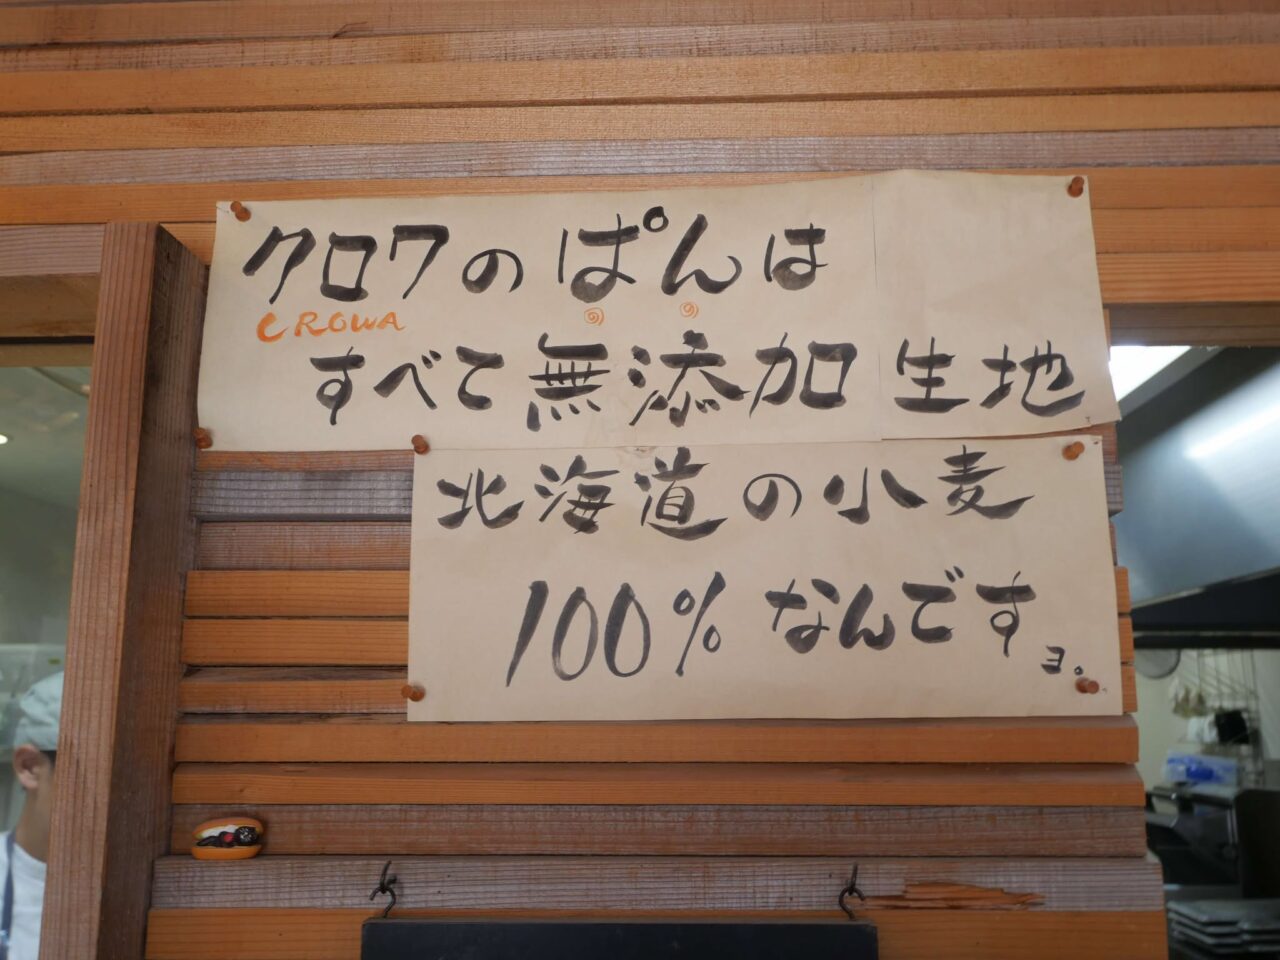 クロワのぱんは
CROWA
すべて無添加生地
北海道の小麦
100%なんですョ。